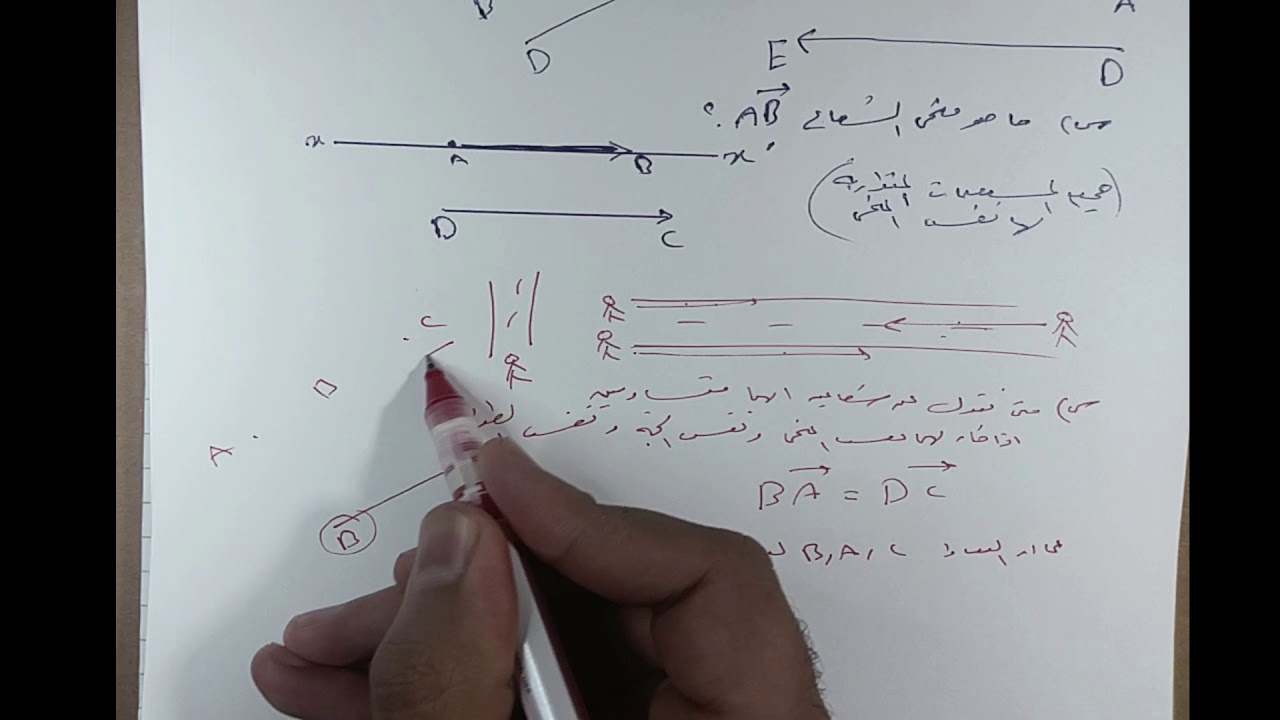 B
A
D
E
D
س) ما هو منحى الشعاع AB ؟
x A B x'
(جميع المستقيمات المتوازية
لها نفس المنحى)
D C
C
D
س) متى نقول عن شعاعين انهما متساويين
اذا كان لهما نفس المنحى ونفس الجهة ونفس الطول
A
BA = DC
B
B, A, C